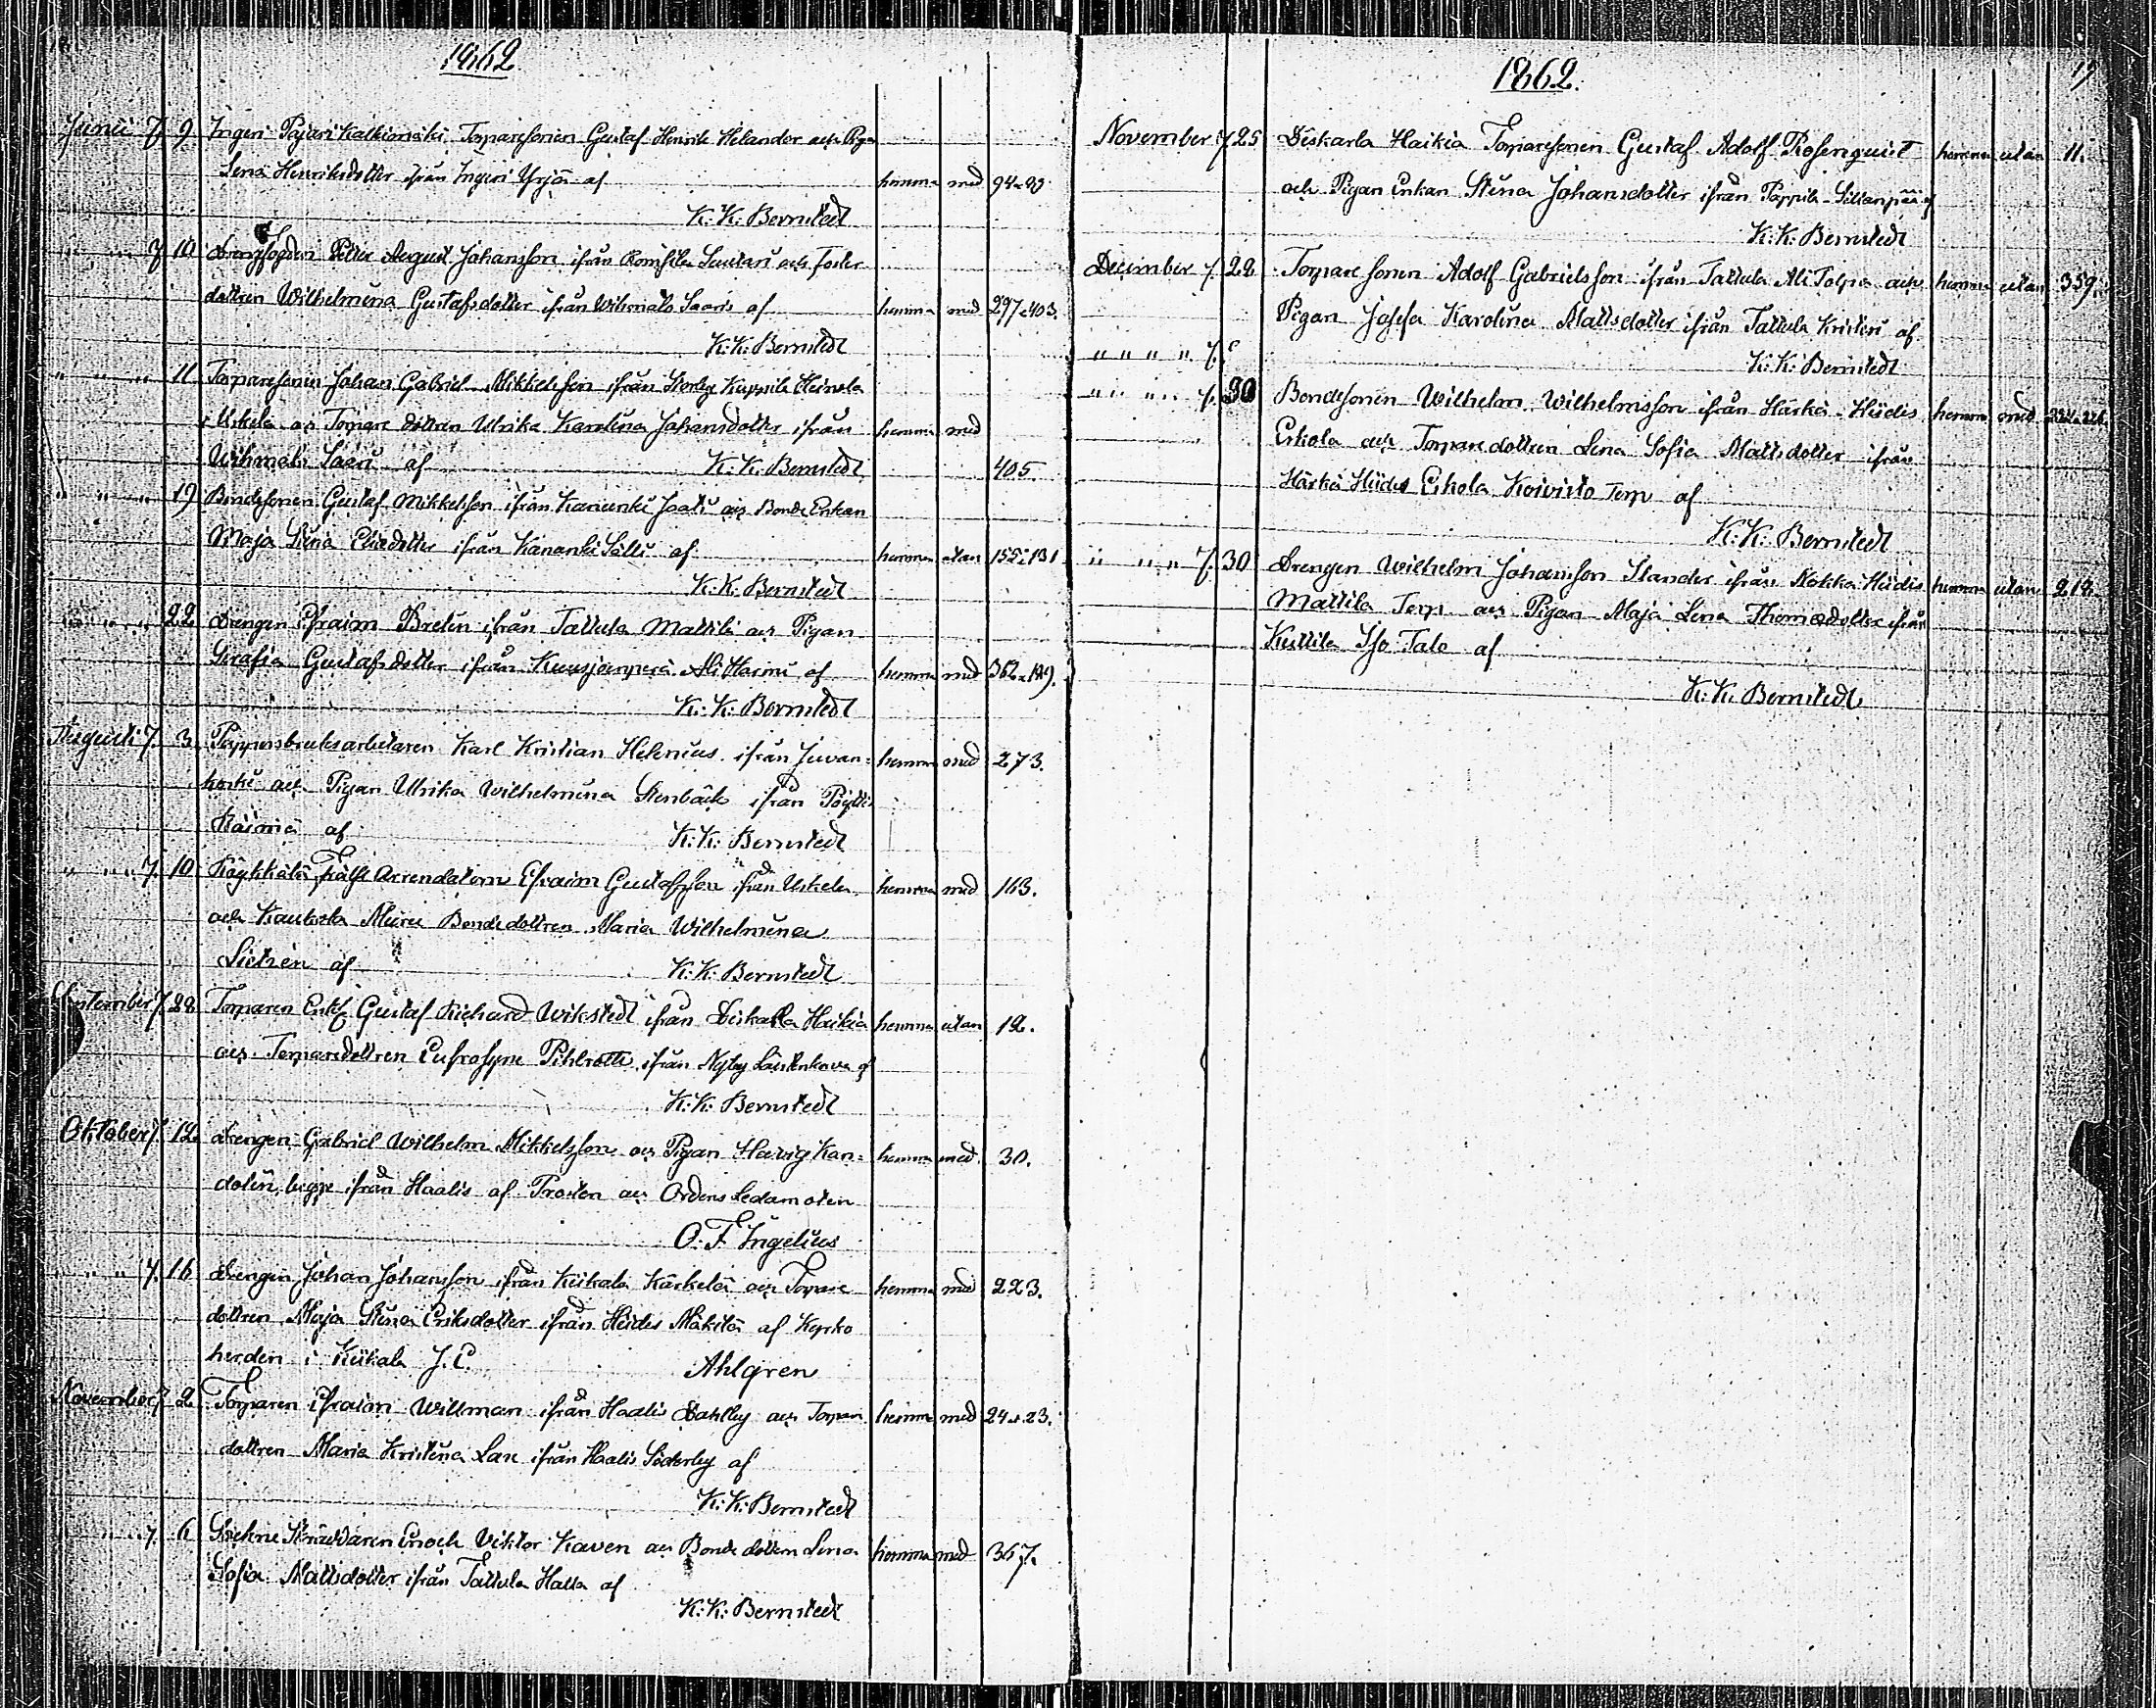 1862
Junii 7. 9 Ingeri Pajari Kalliomäki Torparesonen Gustaf Henrik Helander och Pigan
Lena Henriksdotter ifrån Ingeri Yrjä af hemma med 94.
K: K: Bernstedt
7. 10 Drengfogden Petter August Johansson ifrån Suutari och Foster
dottren Wilhelmina Gustafsdotter ifrån Wihmalo Saari af hemma med 297.403.
K: K: Bernstedt
" " " 11 Torparesonen Johan Gabriel Mikkelsson ifrån Kuppila Heinola
i Uskela och Torpare dottren Ulrika Karolina Johansdotter ifrån hemma med
Wihmalo Saari af K: K: Bernstedt 405.
" " " 19 Bondesonen Gustaf Mikkelsson ifrån Kananki Jaali och Bonde Enkan
Maja Stina ifrån Kananki Sälli af hemma utan 155:131
K: K: Bernstedt
" " " 22 Drengen Efraim Brelin ifrån Tattula Mattila och Pigan
Serafia Gustafsdotter ifrån Kuusjoenperä Ali Harmi af hemma med 362.149.
K: K: Bernstedt
Augusti 7. 3. Pappersbruksarbetaren Karl Kristian Helenius ifrån Juvan= hemma med 273.
koski och Pigan Ulrika Wilhelmina Stenbäck ifrån Pöytiö
af K: K: Bernstedt
" " 7. 10 Arrendatorn Efraim Gustafsson ifrån Uskela hemma med 163.
och Kaukola Muru Bondedottren Maria Wilhelmina
af K: K: Bernstedt
September 7. 28 Torparen Enkl. Gustaf Richard Wikstedt ifrån Diskarla Haikia hemma utan 12.
och Torparedottren Eufrosyne ifrån Nyby af
K: K: Bernstedt
Oktober 7. 12 Drengen Gabriel Wilhelm Mikkelsson och Pigan Hewig Kan= hemma med 30.
dolin, begge ifrån Haalis af Prosten och Ordens Ledamoten
O. F. Ingelius
" " 7. 16 Drengen Johan Johansson ifrån Kiikala Kärkelä och Torpare hemma med 223.
dottren Maja Stina Eriksdotter ifrån Hiidis Mäkilä af Kyrko
herden i Kiikala J. E. Ahlgren
November 7. 2 Torparen Efraim Willman ifrån Haalis Dahlby och Torpare hemma med 24.23.
dottren Maria Kristina Lax ifrån Haalis Söderby af
K: K: Bernstedt
" " 7. 6 Skräddaren Enoch Viktor Kaven och Bonde dottren Lena hemma med 367.
Sofia Mattsdotter ifrån Tattula Halla af
K: K: Bernstedt
17
1862.
November 7. 25 Diskarla Haikia Torparesonen Gustaf Adolf Rosenquist hemma utan 11.
och Pigan Enkan Stina Johansdotter ifrån Pappila Sillanpää af
K: K: Bernstedt
December 7. 28 Torparesonen Adolf Gabrielsson ifrån Tattula Ali Tolpa och hemma utan 359.
Pigan Josefa Karolina Mattsdotter ifrån Tattula Kristeri af
" " " " 7. K: K: Bernstedt
" " " " 7. 30 Bondesonen Wilhelm Wilhelmsson ifrån Härkä-Hiidis hemma med
Eskola och Torparedottren Lena Sofia Mattsdotter ifrån
Härkä Hiidis Eskola Koivisto Torp af
K: K: Bernstedt
" " " 7. 30 Drengen Wilhelm Johansson Stander ifrån Nokka Hiidis hemma utan 212.
Mattila Torp och Pigan Maja Lena Thomasdotter ifrån
Kuttila Iso Talo af
K: K: Bernstedt